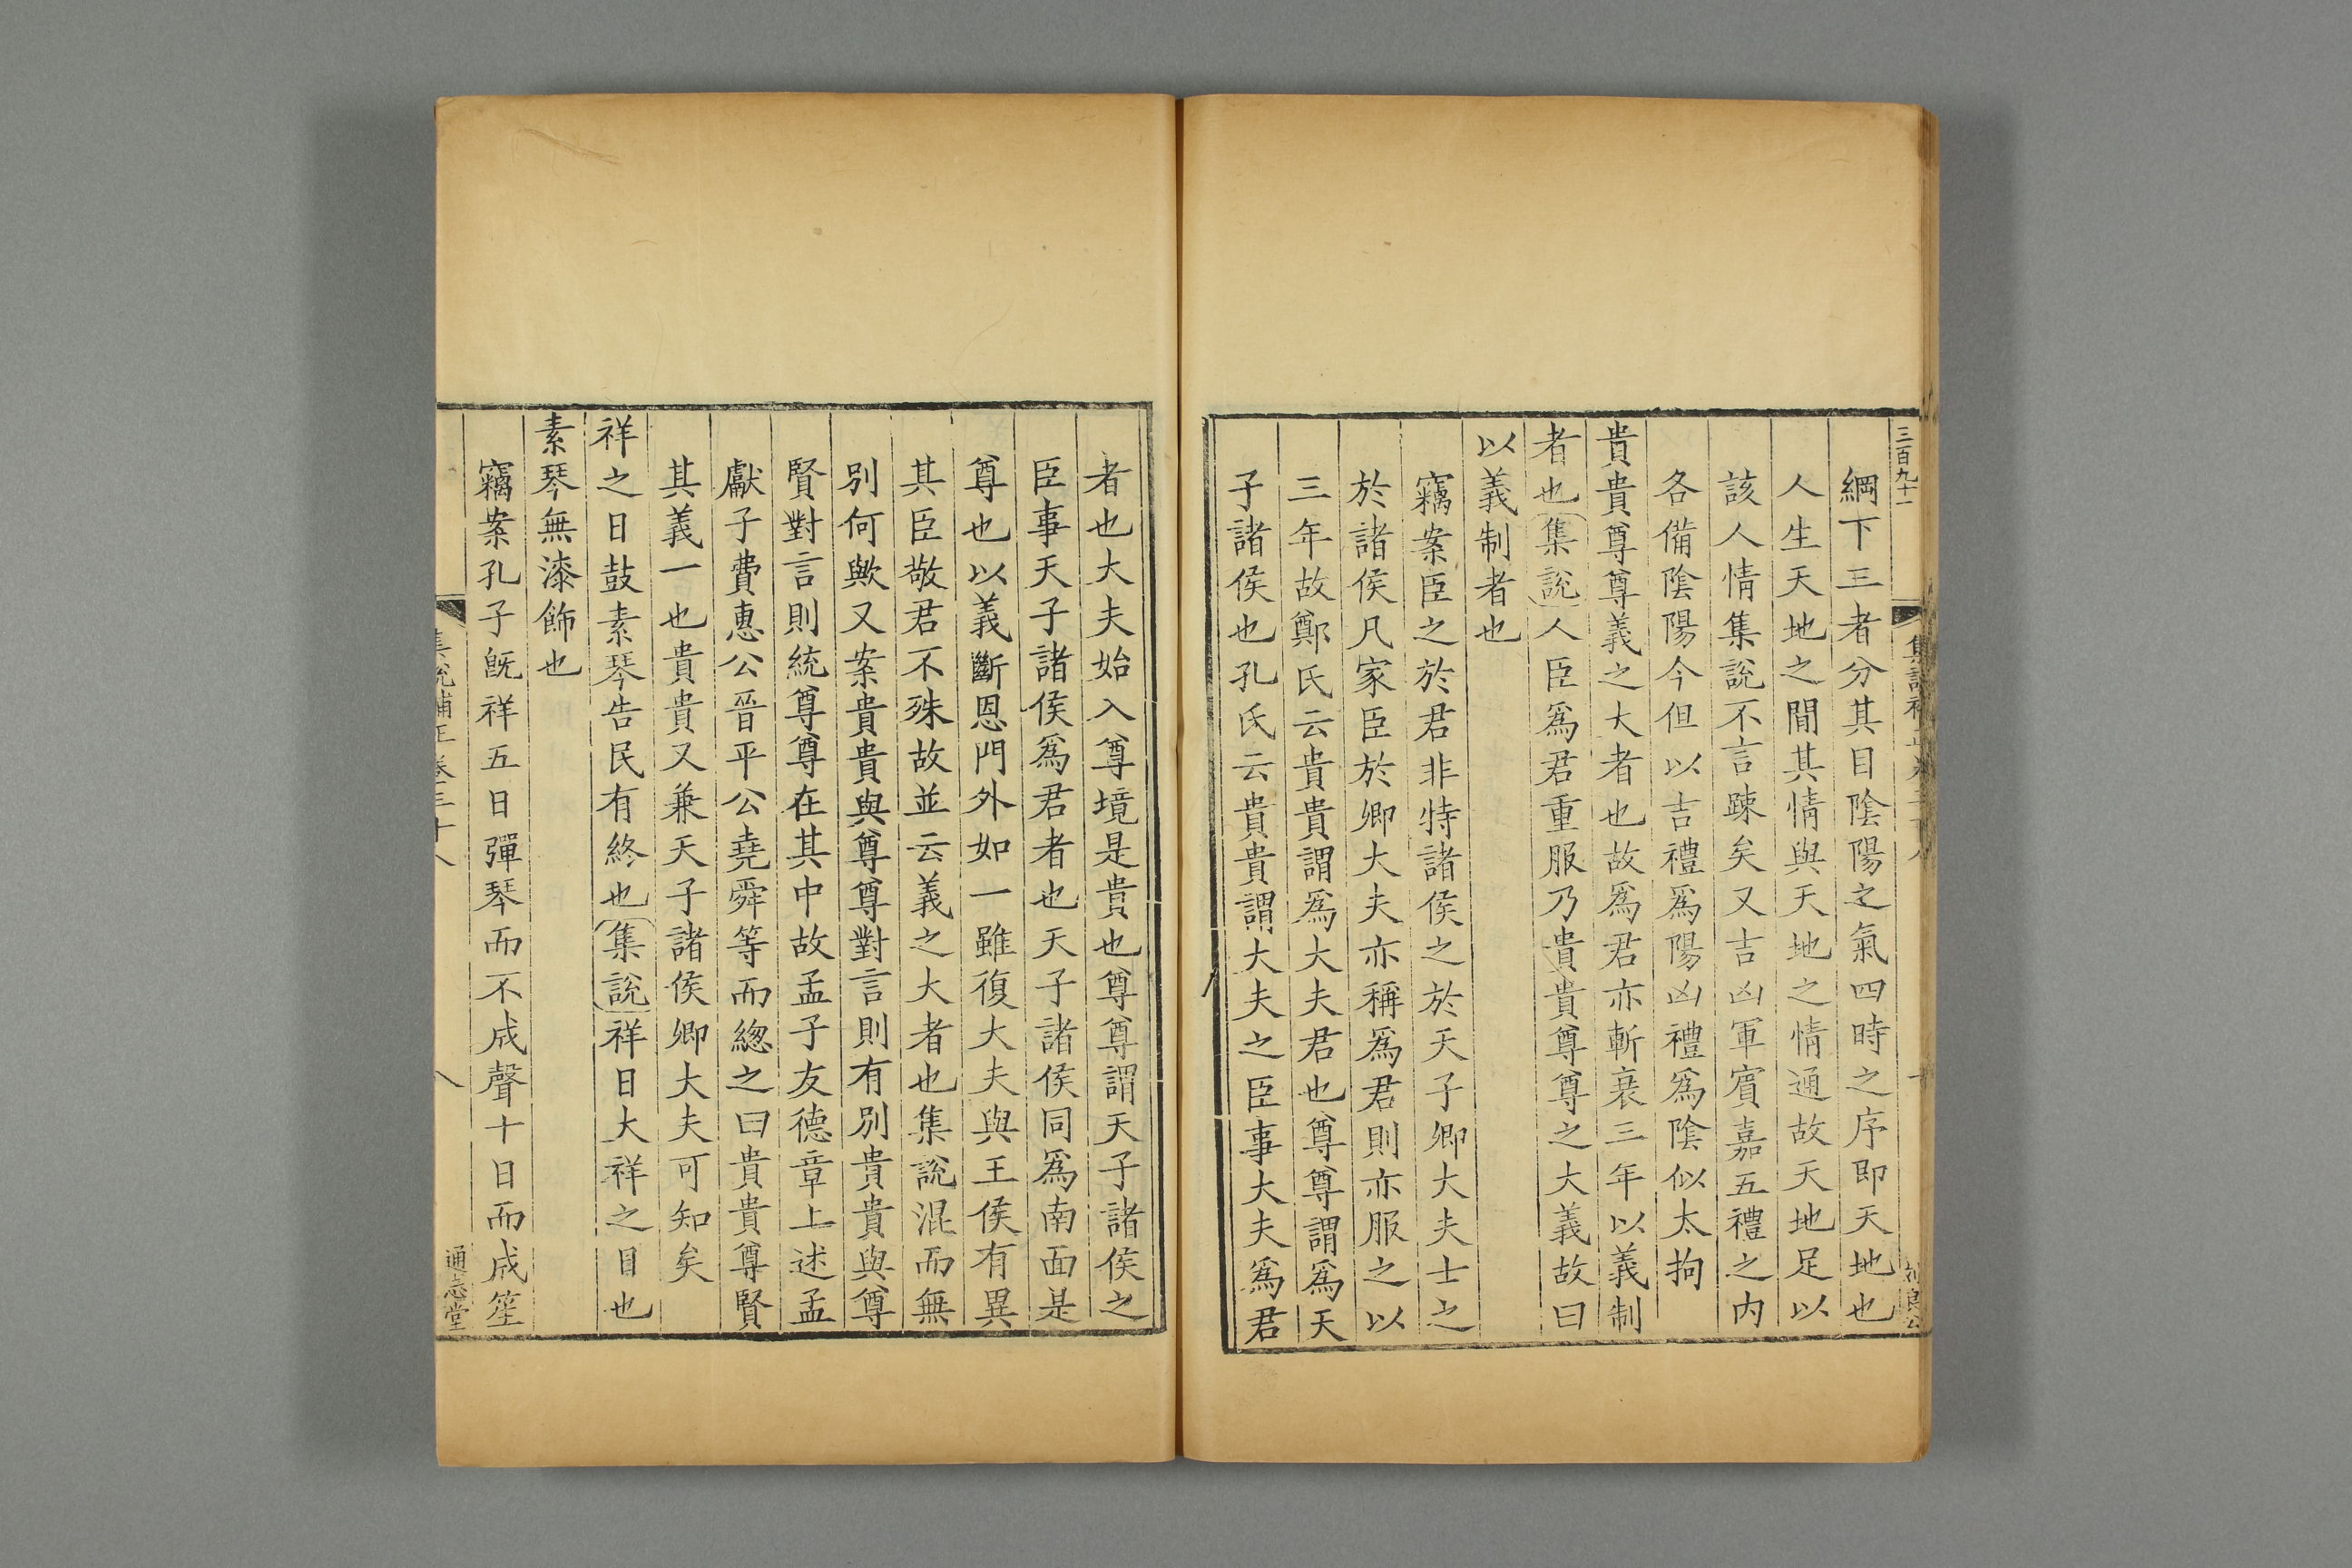 三百九十一
綱下三者分其目陰陽之氣四時之序即天地也
人生天地之間其情與天地之情通故天地足以
該人情集說不言踈矣又吉凶軍賓嘉五禮之内
各備陰陽今但以吉禮爲陽凶禮爲陰似太拘
貴貴尊尊義之大者也故爲君亦斬衰三年以義制
者也集說人臣爲君重服乃貴貴尊尊之大義故曰
以義制者也
竊案臣之於君非特諸侯之於天子卿大夫士之
於諸侯凡家臣於卿大夫亦稱爲君則亦服之以
三年故鄭氏云貴貴謂爲大夫君也尊尊謂爲天
子諸侯也孔氏云貴貴謂大夫之臣事大夫爲君
者也大夫始入尊境是貴也尊尊謂天子諸侯之
臣事天子諸侯爲君者也天子諸侯同爲南面是
尊也以義斷恩門外如一雖復大夫與王侯有異
其臣敬君不殊故並云義之大者也集說混而無
別何歟又案貴貴與尊尊對言則有別貴貴與尊
賢對言則統尊尊在其中故孟子友德章上述孟
獻子費惠公晉平公堯舜等而緫之曰貴貴尊賢
其義一也貴貴又兼天子諸侯卿大夫可知矣
祥之日鼓素琴告民有終也集說祥日大祥之日也
素琴無漆飾也
竊案孔子旣祥五日彈琴而不成聲十日而成笙
集說補正卷三十八
通志堂